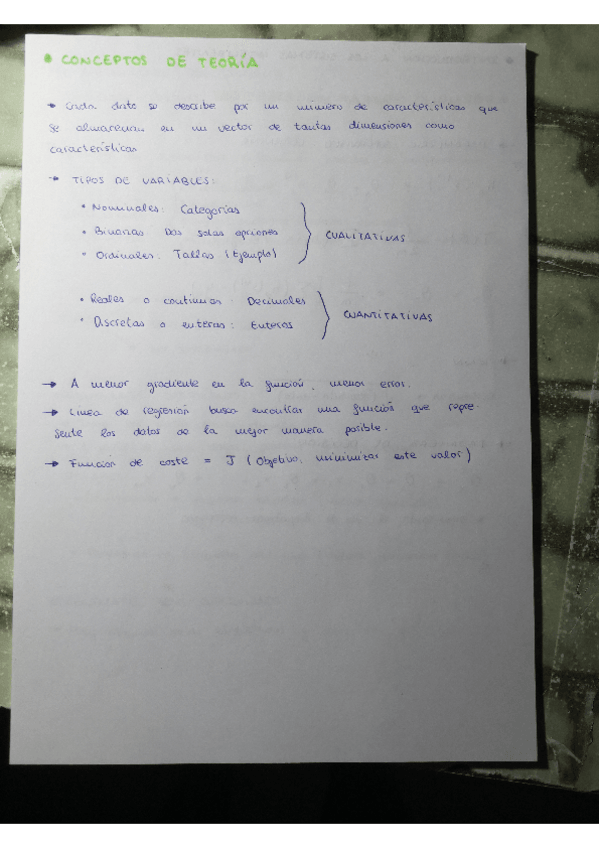 * CONCEPTOS DE TEORÍA
→ Cada dato se describe por un número de características que
se almacenan en un vector de tantas dimensiones como
características
→ TIPOS DE VARIABLES:
• Nominales: Categorías
• Binarias Dos solas opciones
• Ordinales: Tallas (Ejemplo)
CUALITATIVAS
• Reales o continuas: Decimales
• Discretas o enteras: Enteros
CUANTITATIVAS
→ A menor gradiente en la función, menor error.
→ Línea de regresión busca encontrar una función que repre-
sente los datos de la mejor manera posible.
→ Función de coste = J (Objetivo, minimizar este valor)